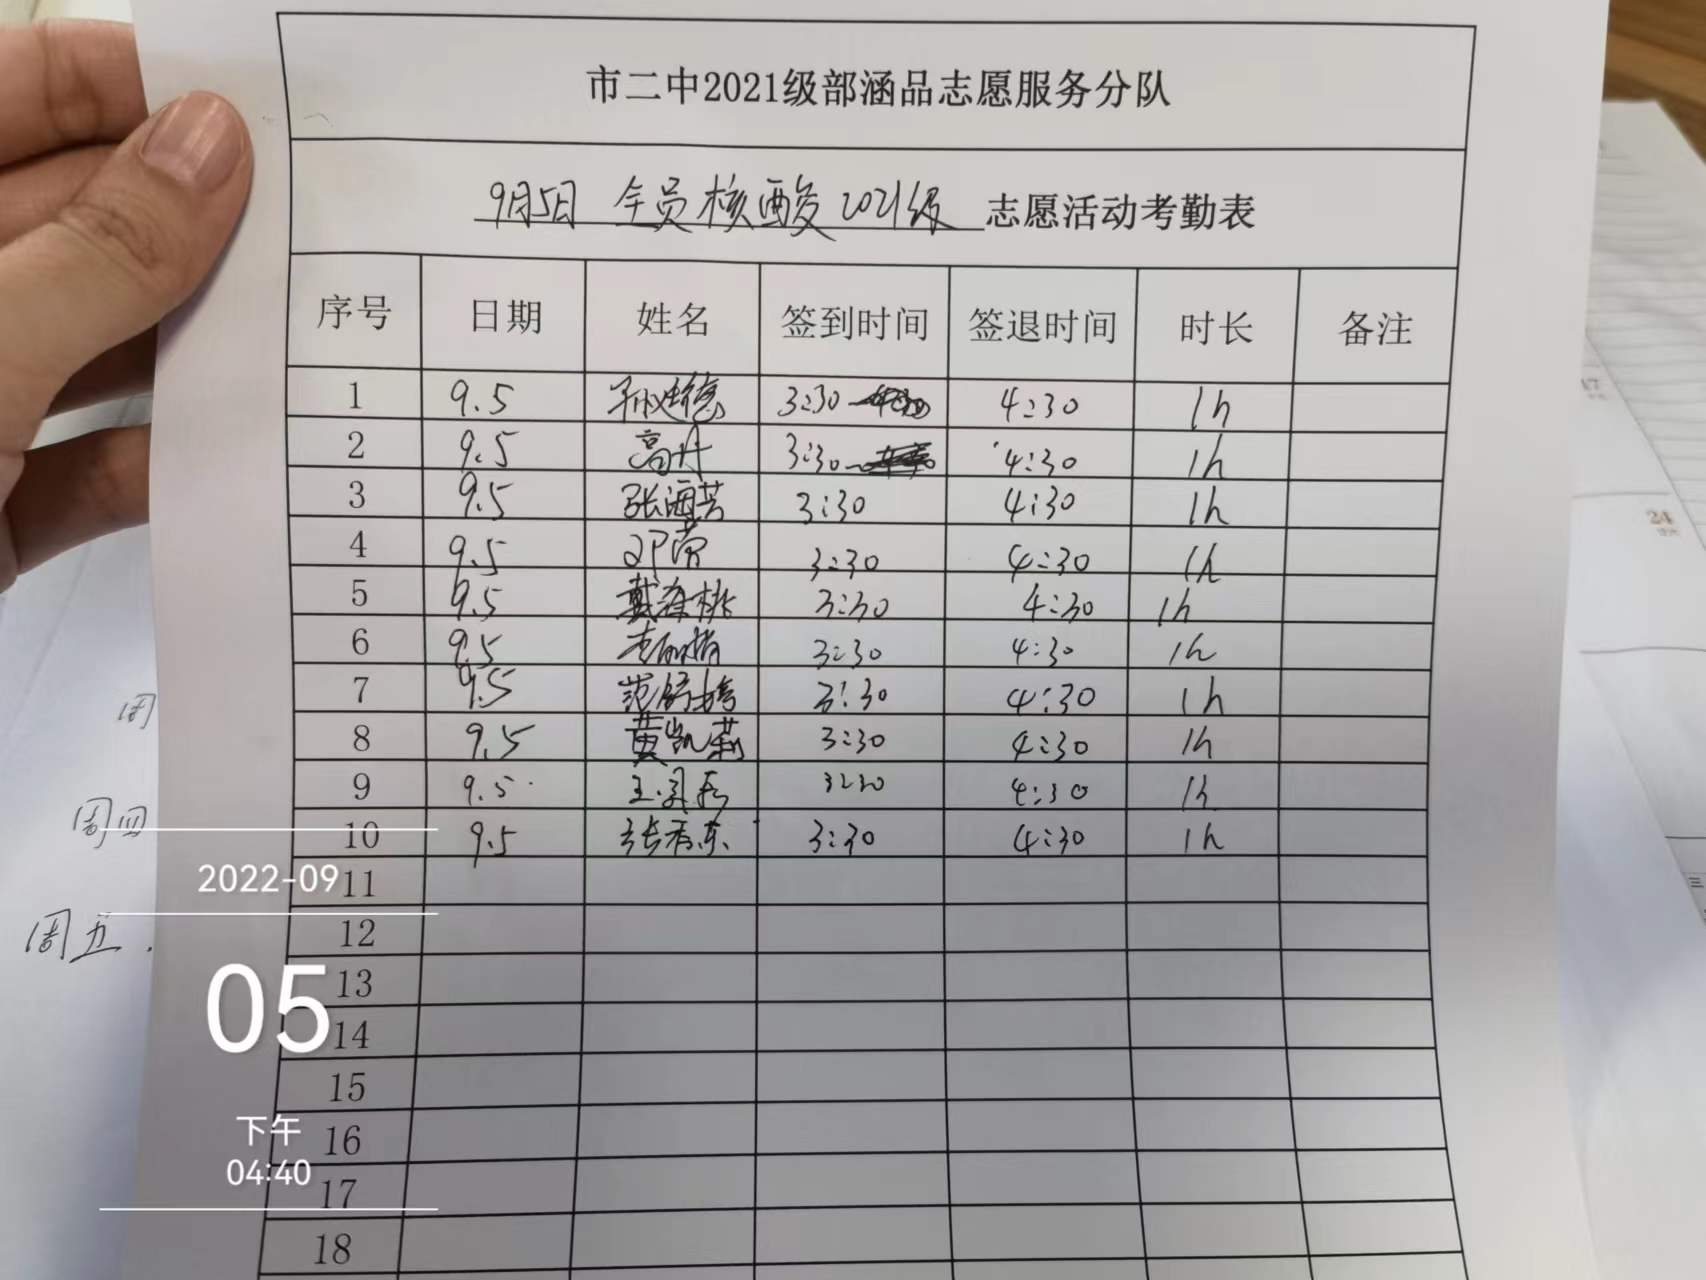 市二中2021级部涵品志愿服务分队
9月5日 全员核酸2021级 志愿活动考勤表
序号 日期 姓名 签到时间 签退时间 时长 备注
1 9.5 3:30 4:30 1h
2 9.5 高丹 3:30 4:30 1h
3 9.5 张海芸 3:30 4:30 1h
4 9.5 邓蓉 3:30 4:30 1h
5 9.5 3:30 4:30 1h
6 9.5 3:30 4:30 1h
7 9.5 3:30 4:30 1h
8 9.5 黄凯莉 3:30 4:30 1h
9 9.5 3:30 4:30 1h
10 9.5 3:30 4:30 1h
11
12
13
14
15
16
17
18
周
周四
周五.
2022-09
05
下午
04:40
17
24